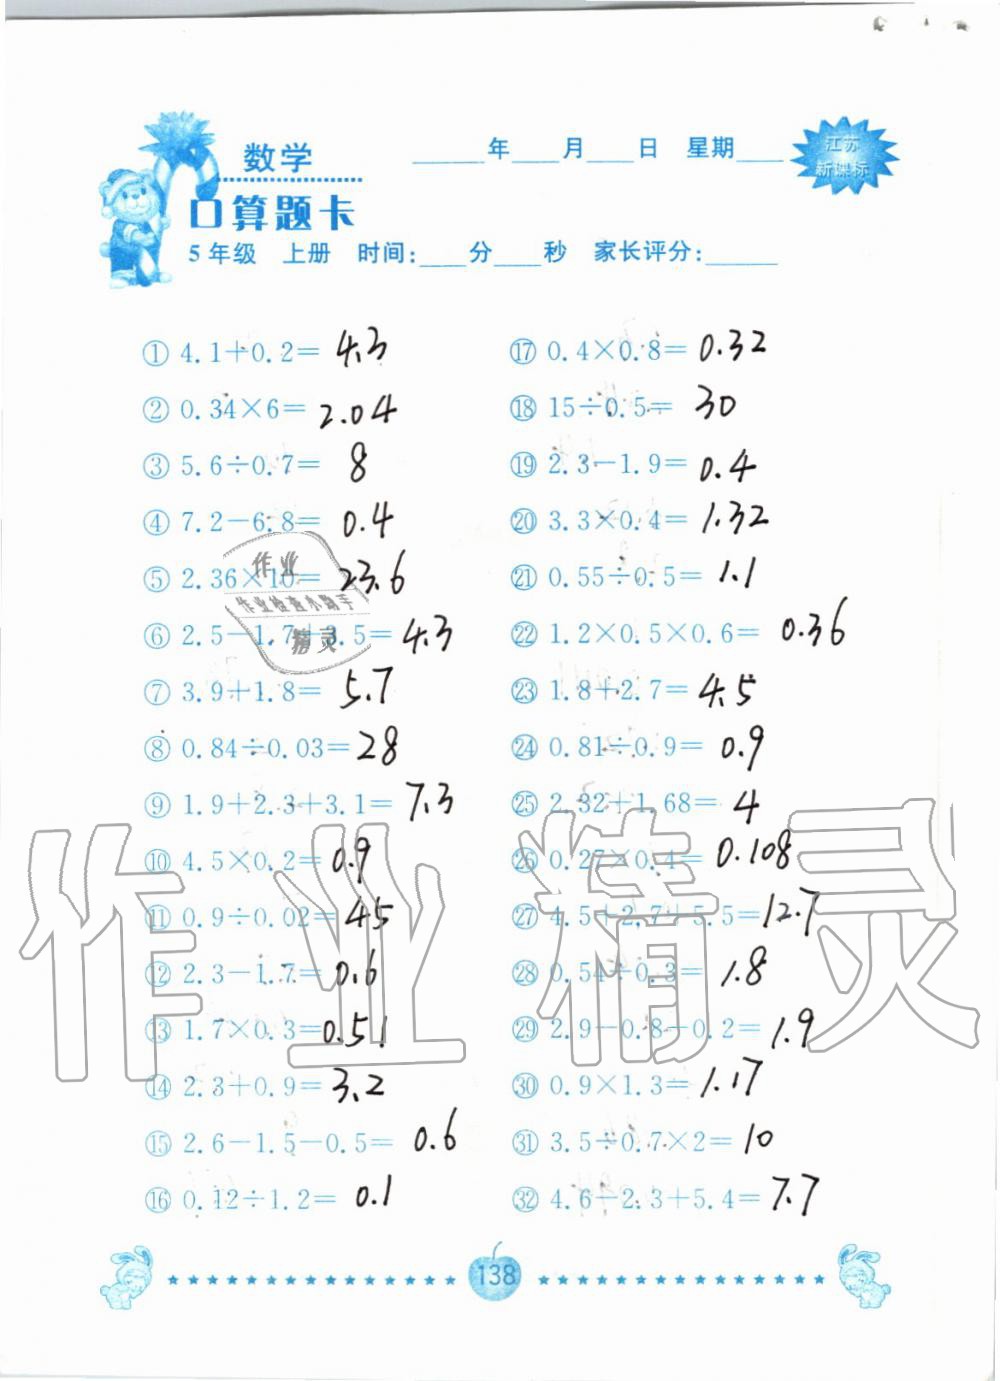 数学
____年____月____日 星期____
江苏
新课标
口算题卡
5年级 上册 时间:____分____秒 家长评分:______
① 4.1+0.2= 4.3
② 0.34×6= 2.04
③ 5.6÷0.7= 8
④ 7.2-6.8= 0.4
⑤ 2.36×10= 23.6
⑥ 2.5-1.7+3.5= 4.3
⑦ 3.9+1.8= 5.7
⑧ 0.84÷0.03= 28
⑨ 1.9+2.3+3.1= 7.3
⑩ 4.5×0.2= 0.9
⑪ 0.9÷0.02= 45
⑫ 2.3-1.7= 0.6
⑬ 1.7×0.3= 0.51
⑭ 2.3+0.9= 3.2
⑮ 2.6-1.5-0.5= 0.6
⑯ 0.12÷1.2= 0.1
⑰ 0.4×0.8= 0.32
⑱ 15÷0.5= 30
⑲ 2.3-1.9= 0.4
⑳ 3.3×0.4= 1.32
㉑ 0.55÷0.5= 1.1
㉒ 1.2×0.5×0.6= 0.36
㉓ 1.8+2.7= 4.5
㉔ 0.81÷0.9= 0.9
㉕ 2.32+1.68= 4
㉖ 0.27×0.4= 0.108
㉗ 4.5+2.7+5.5= 12.7
㉘ 0.54÷0.3= 1.8
㉙ 2.9-0.8-0.2= 1.9
㉚ 0.9×1.3= 1.17
㉛ 3.5÷0.7×2= 10
㉜ 4.6-2.3+5.4= 7.7
作业
作业检查小助手
精灵
作业精灵
138